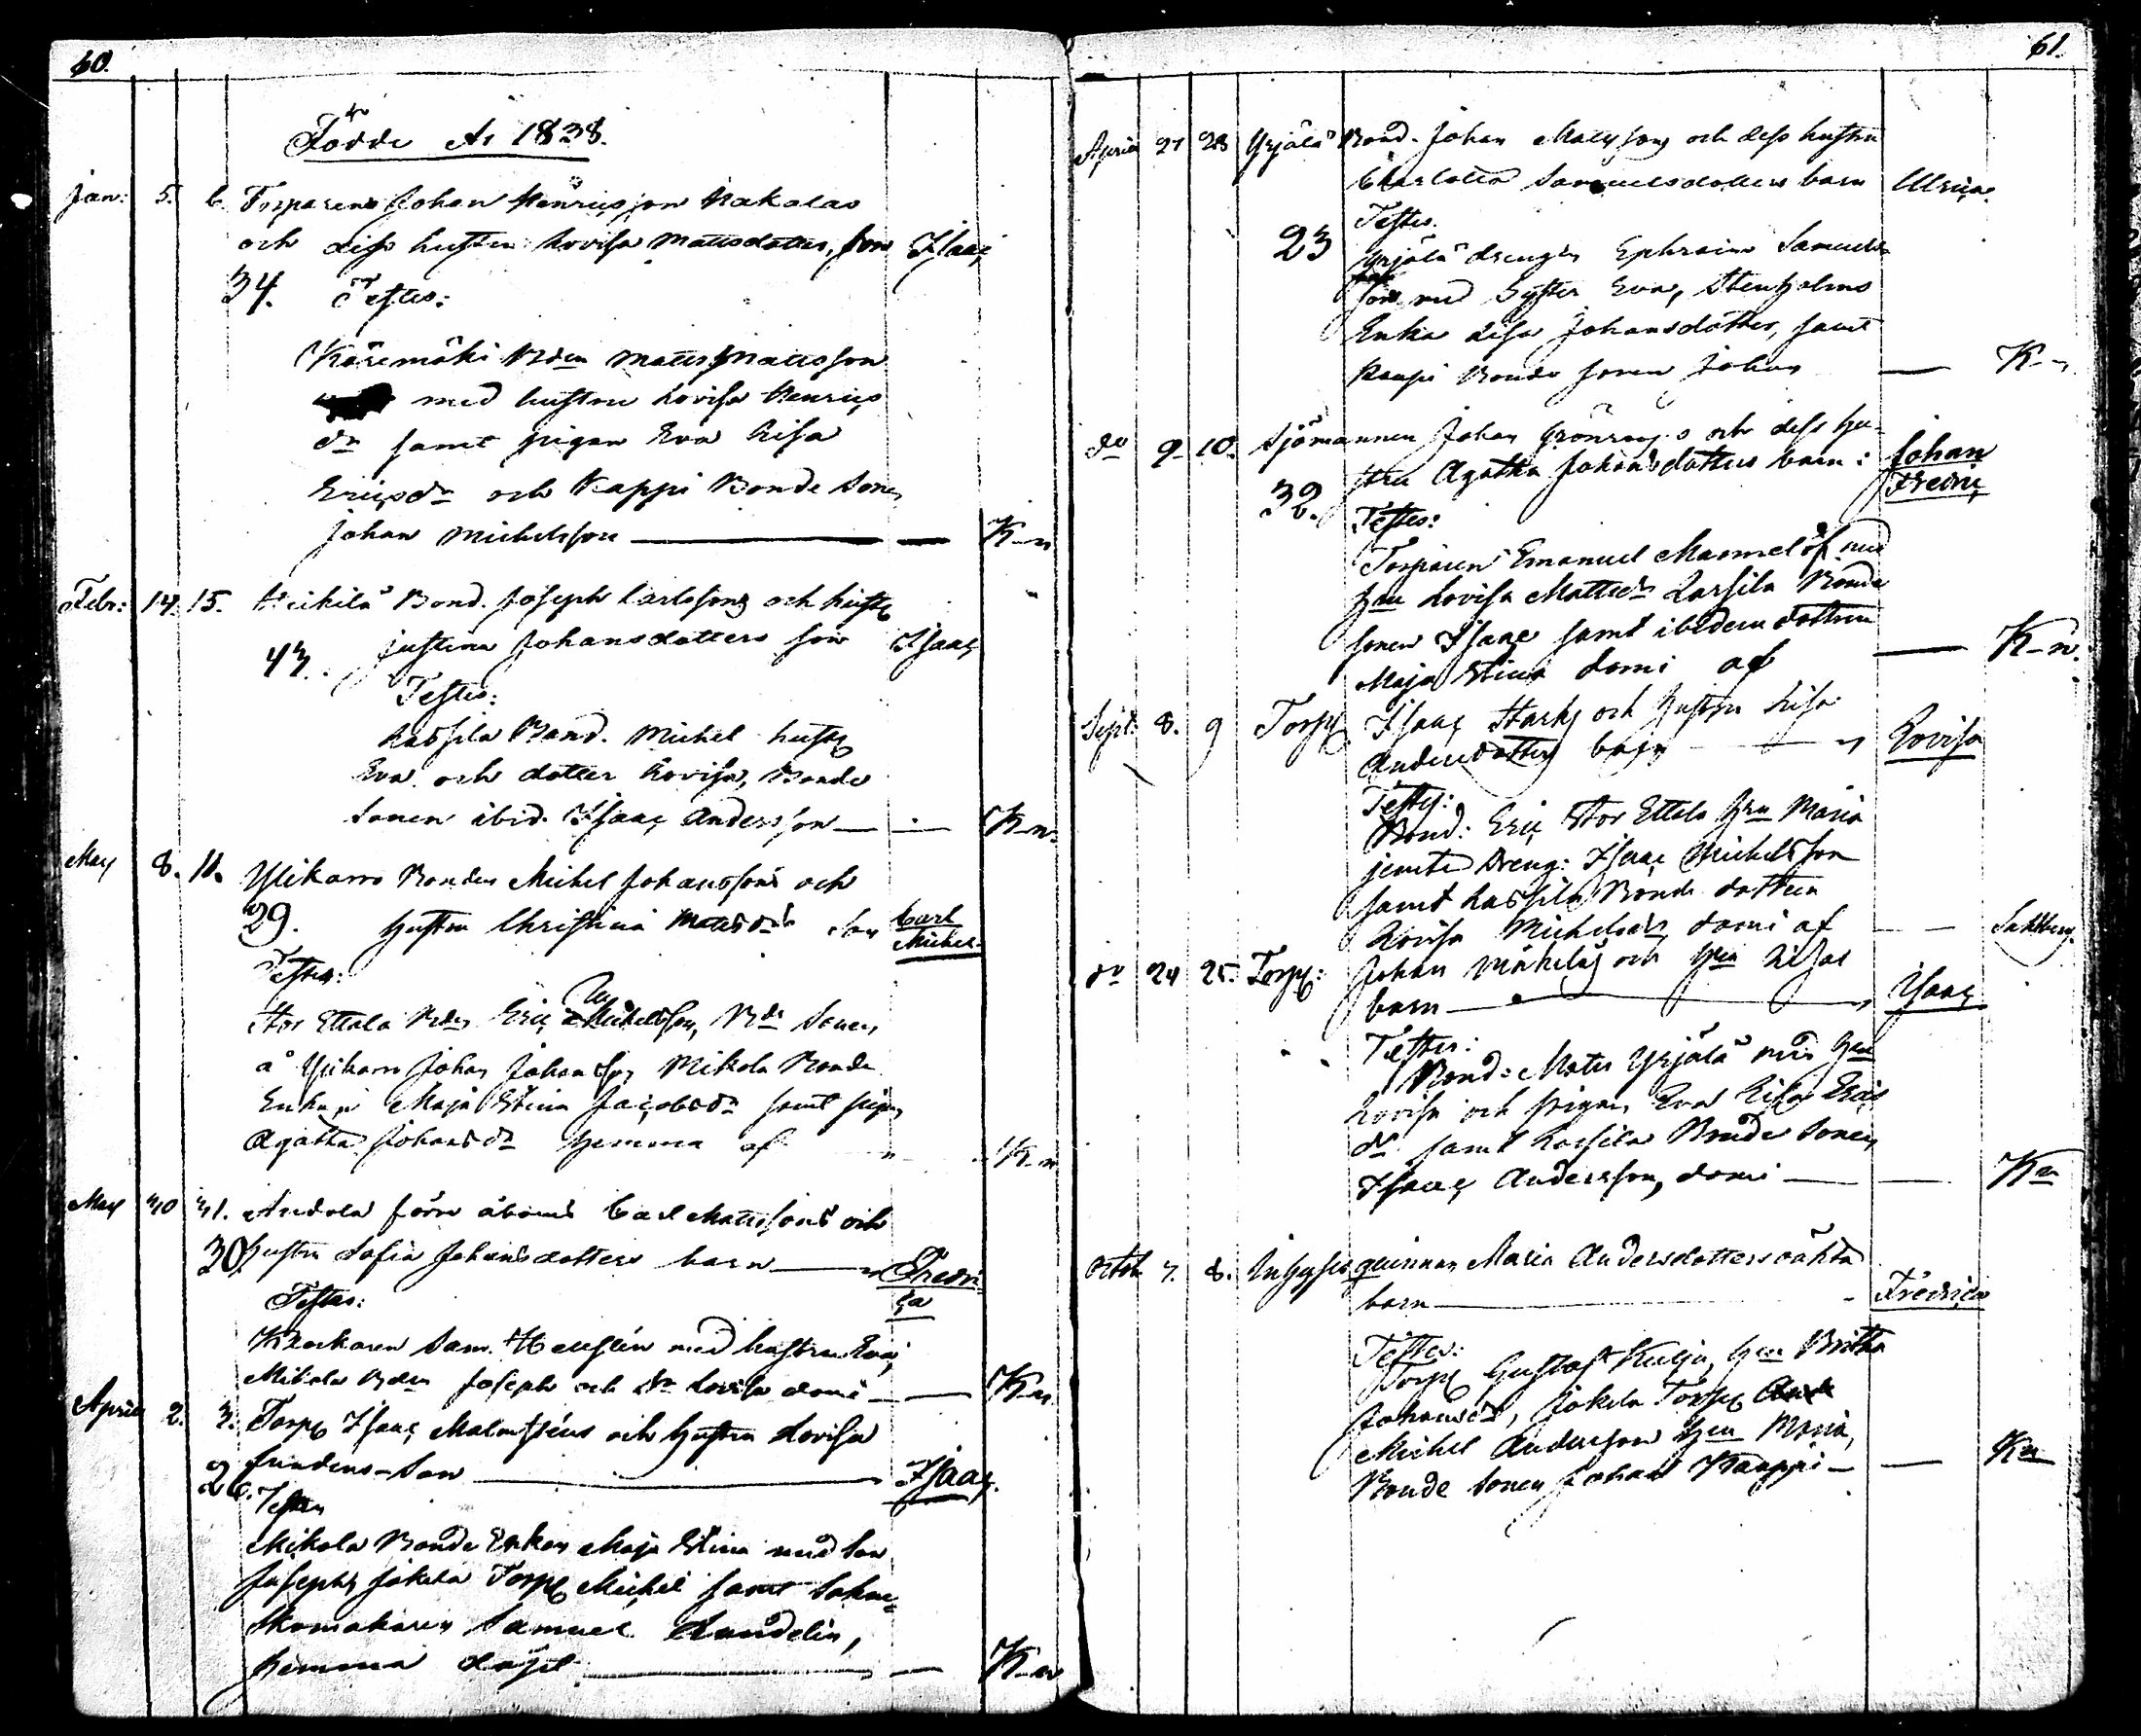 60.
Födde År 1838.
Jan: 5. 6. Torparens Johan Henricsson Makalas
och dess hustru Lovisa Mattsdotters, son Isaac
34. Testes:
Käremäki Bden Matts Mattsson
med hustru Lovisa Henrics
dr samt pigan Eva Lisa
Ericsdr och Kappi Bonde Sonen
Johan Michelsson — K-n
Febr: 14. 15. Heikilä Bond. Joseph Carlssons och hust
43. Justina Johansdotters son Isaac
Testes:
Lassila Bond. Michel hust
Eva och dotter Lovisa, Bonde
Sonen ibid. Isaac Andersson — K-n.
May 8. 11. Ylikarro Bonden Michel Johanssons och
29. hustru Christina Mattsdrs Son Carl
Michel
Testes:
Stor Ettala Bdn Eric Michelsson, Bde Sonen
å Ylikarro Johan Johansson Mikola Bonde
Enkan Maja Stina Jacobsdr samt pigan
Agatha Johansdr hemma af K-n
May 30 31. Andola förre åboens Carl Mattssons och
30. hustru Sofia Johansdotters barn — Fredri
ca
Testes:
Klockaren Sam. Hellsten med hustru Eva,
Mikola Bden Joseph och Dr Lovisa domi — K-n.
April 2. 3. Torp Isaac Malmsténs och hustru Lovisa
26. Lundens Son — Isaac.
Testes
Mikola Bonde Enkan Maja Stina med Son
Joseph, Jokela Torp Michel samt Sokne
Skomakaren Samuel Sundelin,
hemma — K-n
61.
April 27 28 Yrjälä Bond. Johan Matssons och dess hustru
Charlotta Samuelsdotters barn Ulrica.
Testes.
23 Yrjälä drengen Ephraim Samuels
son med Syster Eva, Stenholms
Enka Lisa Johansdotter, samt
Kaupi Bonde sonen Johan — K-n
do 9. 10. Sjömannen Johan Grönroos o och dess hu-
stru Agatha Johansdotters barn: Johan
Fredric
32. Testes:
Torparen Emanuel Malmelöf med
hru Lovisa Mattsdr Lassila Bonde
sonen Isaac samt ibidem dottren
Maja Stina domi af — K-n.
Sept: 8. 9 Torp Isaac Starks och hustru Lisa
Andersdotters barn — Lovisa
Testes:
Bond: Eric Stor Ettala hru Maria
jemte Dreng: Isaac Michelsson
samt Lassila Bonde dottren
Lovisa Michelsdr domi af — Sahlberg.
do 24 25. Torp: Johan Mäkeläs och hru Lisas
barn — Isaac
Testes:
Bond: Mats Yrjälä med hru
Lovisa och pigan Eva Lisa Erics
dr samt Lassila Bonde Sonen
Isaac Andersson, domi — Kn
Octob 7. 8. Inhyses qvinnan Maria Andersdotters oäkta
barn — Fredrica
Testes:
Torp Gustaf Kulju, hru Britha
Johansdr, Jokela Torp
Michel Andersson hru Maria,
Bonde Sonen Johan Kauppi — Kn